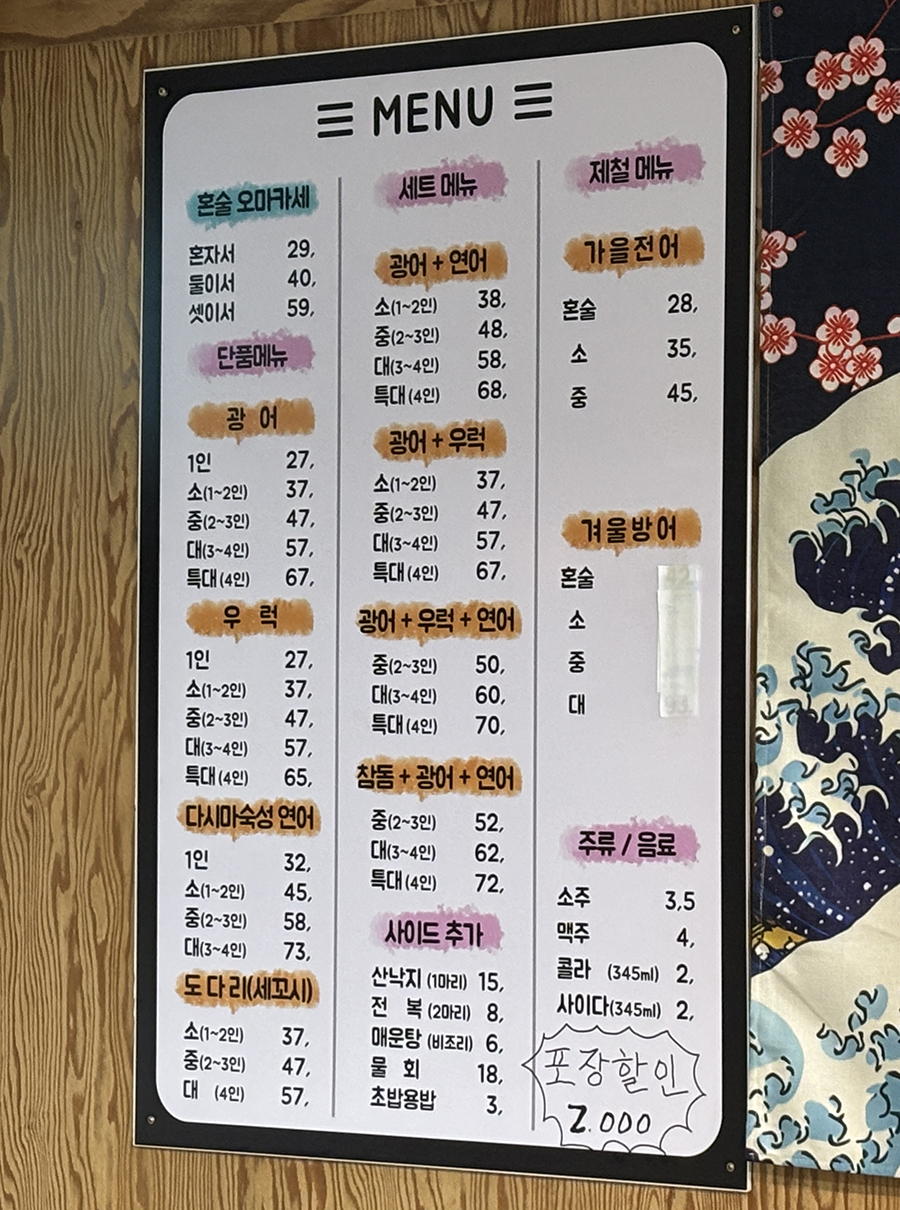 MENU
혼술 오마카세
혼자서 29,
둘이서 40,
셋이서 59,
단품메뉴
광 어
1인 27,
소(1~2인) 37,
중(2~3인) 47,
대(3~4인) 57,
특대(4인) 67,
우 럭
1인 27,
소(1~2인) 37,
중(2~3인) 47,
대(3~4인) 57,
특대(4인) 65,
다시마숙성 연어
1인 32,
소(1~2인) 45,
중(2~3인) 58,
대(3~4인) 73,
도다리(세꼬시)
소(1~2인) 37,
중(2~3인) 47,
대 (4인) 57,
세트 메뉴
광어 + 연어
소(1~2인) 38,
중(2~3인) 48,
대(3~4인) 58,
특대(4인) 68,
광어 + 우럭
소(1~2인) 37,
중(2~3인) 47,
대(3~4인) 57,
특대(4인) 67,
광어 + 우럭 + 연어
중(2~3인) 50,
대(3~4인) 60,
특대(4인) 70,
참돔 + 광어 + 연어
중(2~3인) 52,
대(3~4인) 62,
특대(4인) 72,
사이드 추가
산낙지 (1마리) 15,
전 복 (2마리) 8,
매운탕 (비조리) 6,
물 회 18,
초밥용밥 3,
제철 메뉴
가을전어
혼술 28,
소 35,
중 45,
겨울방어
혼술
소
중
대
주류 / 음료
소주 3,5
맥주 4,
콜라 (345ml) 2,
사이다(345ml) 2,
포장할인
2.000